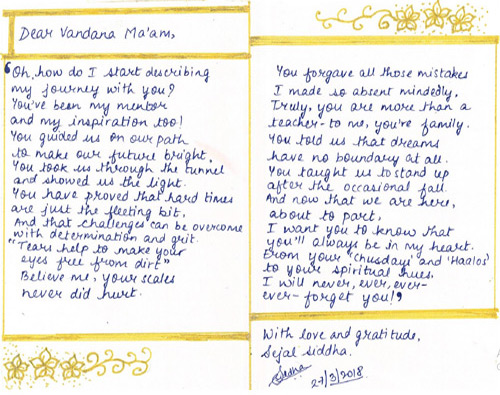 Dear Vandana Ma'am,
"Oh, how do I start describing
my journey with you?
You've been my mentor
and my inspiration too!
You guided us on our path
to make our future bright.
You took us through the tunnel
and showed us the light.
You have proved that hard times
are just the fleeting bit,
And that challenges can be overcome
with determination and grit.
"Tears help to make your
eyes free from dirt"
Believe me, your scales
never did hurt.
You forgave all those mistakes
I made so absent mindedly,
Truly, you are more than a
teacher to me, you're family.
You told us that dreams
have no boundary at all.
You taught us to stand up
after the occasional fall.
And now that we are here,
about to part,
I want you to know that
you'll always be in my heart.
From your 'Chusdayi' and 'Haalos'
to your spiritual hues.
I will never, ever, ever-
ever- forget you!"
With love and gratitude,
Sejal Siddha.
Siddha
27/3/2018